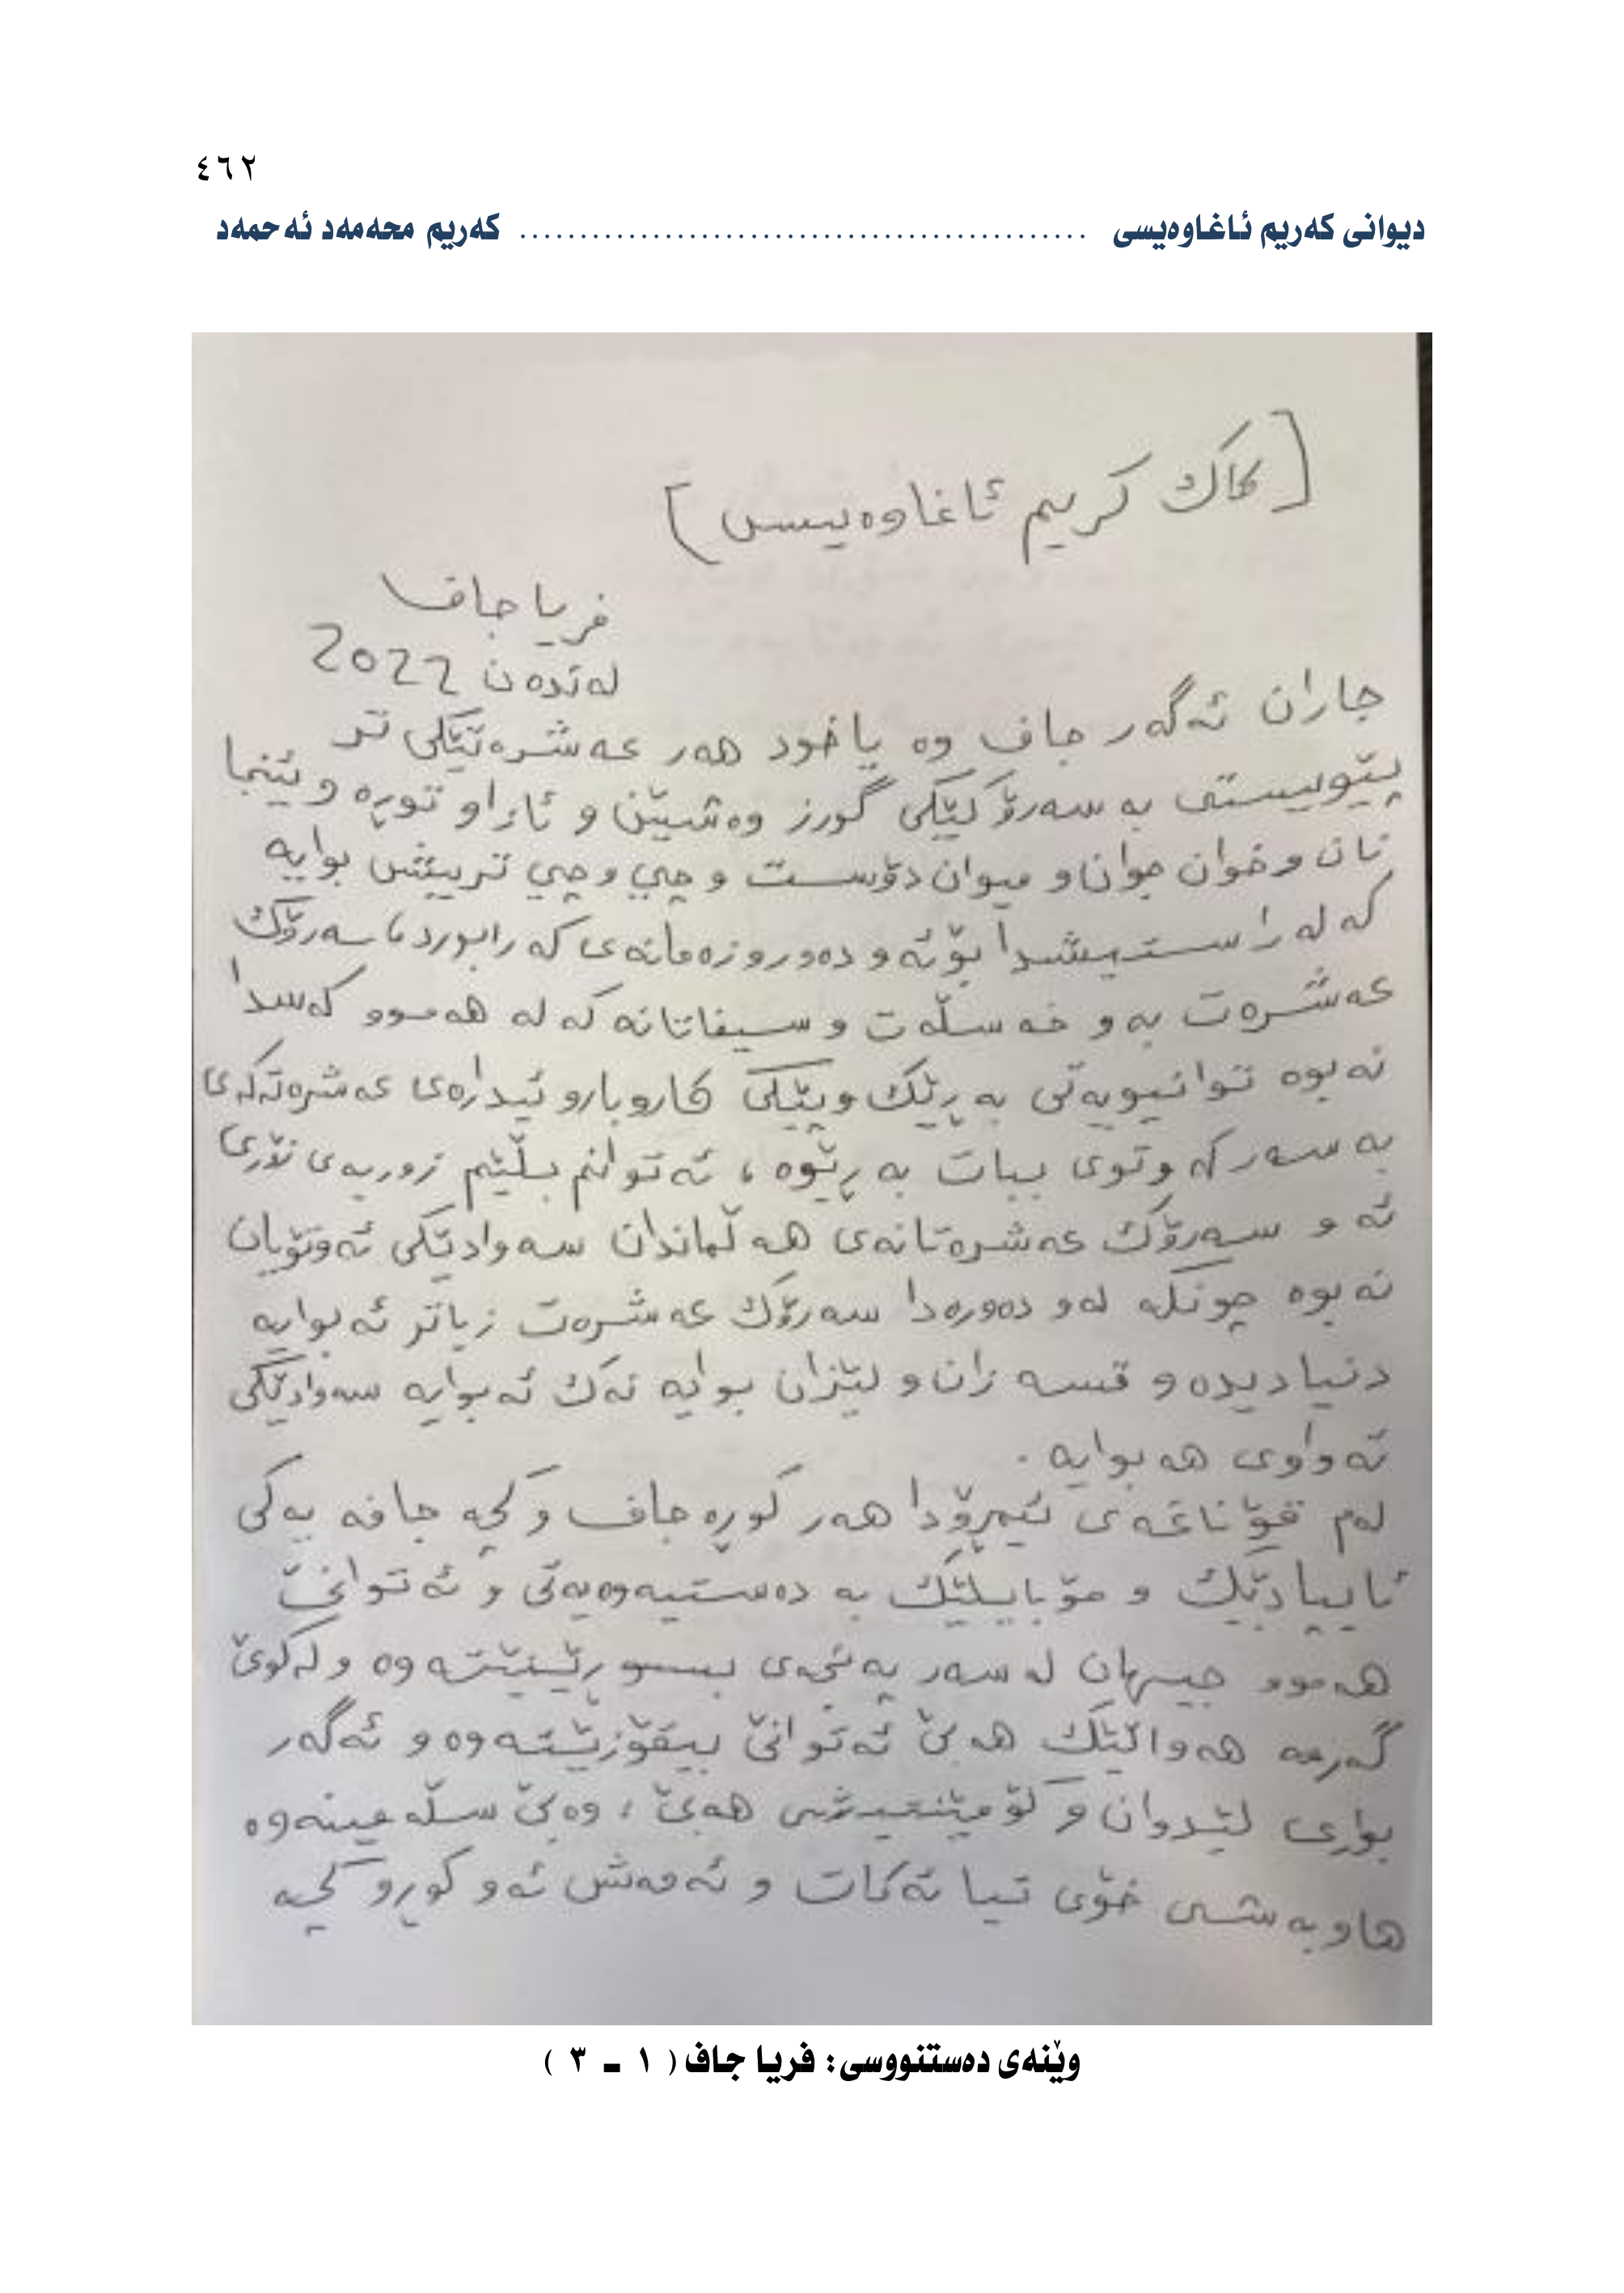 ٤٦٢
دیوانی کەریم ئاغاوەیسی ............................................... کەریم محەمەد ئەحمەد
[کاک کریم ئاغاوەیسی]
فریا جاف
لەندەن 2022
جاران ئەگەر جاف وە یاخود هەر عەشرەتێکی تر
پێویستی بە سەرۆکێکی گورز وەشێن و ئازاو تورە و ئینجا
نان و خوان جوان و میوان دۆست و چی و چی تریش بوایە
کە لە راستیشدا بۆ ئەو دەورو زەمانەی کە رابورد، سەرۆک
عەشرەت بەو خەسڵەت و سیفاتانە کە لە هەموو کەسدا
نەبوە توانیویەتی بە ڕێک و پێکی کاروبارو ئیدارەی عەشرەتەکەی
بە سەرکەوتوی ببات بە ڕێوە، ئەتوانم بڵێم زوربەی زۆری
ئەو سەرۆک عەشرەتانەی هەڵماندان سەوادێکی ئەوتۆیان
نەبوە چونکە لەو دەورەدا سەرۆک عەشرەت زیاتر ئەبوایە
دنیادیدە و قسە زان و لێزان بوایە نەک ئەبوایە سەوادێکی
تەواوی هەبوایە.
لەم قۆناغەی ئیمڕۆدا هەر کورە جاف و کچە جافە یەکی
ئایپادێک و مۆبایلێک بە دەستیەوەیەتی و ئەتوانێ
هەموو جیهان لە سەر پەنجەی بسوڕێنێتەوە و لەکوێ
گەرمە هەواڵێک هەبێ ئەتوانێ بیقۆزێتەوە و ئەگەر
بواری لێدوان و کۆمێنتیشی هەبێ، وەبێ سڵەمینەوە
هاوبەشی خۆی تیا ئەکات و ئەمەش ئەو کورو کچە
وێنەی دەستنووسی: فریا جاف ( ١ ـ ٣ )